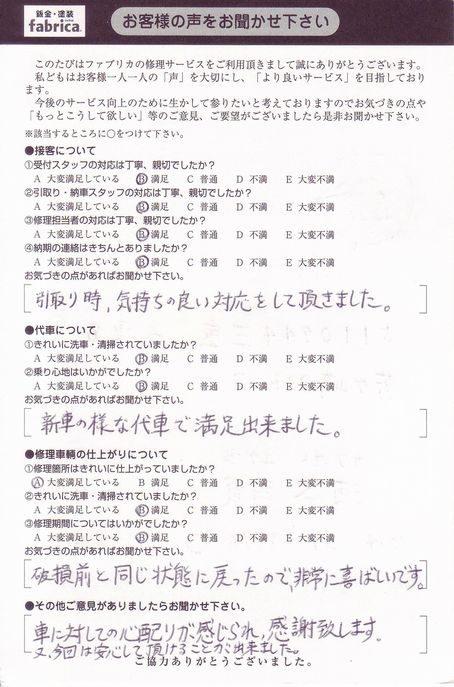 鈑金・塗装
fabrica
お客様の声をお聞かせ下さい
このたびはファブリカの修理サービスをご利用頂きまして誠にありがとうございます。
私どもはお客様一人一人の「声」を大切にし、「より良いサービス」を目指しており
ます。
今後のサービス向上のために生かして参りたいと考えておりますのでお気づきの点や
「もっとこうして欲しい」等のご意見、ご要望がございましたら是非お聞かせ下さい。
※該当するところに○をつけて下さい。
●接客について
①受付スタッフの対応は丁寧、親切でしたか?
A 大変満足している B 満足 C 普通 D 不満 E 大変不満
②引取り・納車スタッフの対応は丁寧、親切でしたか?
A 大変満足している B 満足 C 普通 D 不満 E 大変不満
③修理担当者の対応は丁寧、親切でしたか?
A 大変満足している B 満足 C 普通 D 不満 E 大変不満
④納期の連絡はきちんとありましたか?
A 大変満足している B 満足 C 普通 D 不満 E 大変不満
お気づきの点があればお聞かせ下さい。
引取り時、気持ちの良い対応をして頂きました。
●代車について
①きれいに洗車・清掃されていましたか?
A 大変満足している B 満足 C 普通 D 不満 E 大変不満
②乗り心地はいかがでしたか?
A 大変満足している B 満足 C 普通 D 不満 E 大変不満
お気づきの点があればお聞かせ下さい。
新車の様な代車で満足出来ました。
●修理車輌の仕上がりについて
①修理箇所はきれいに仕上がっていましたか?
A 大変満足している B 満足 C 普通 D 不満 E 大変不満
②きれいに洗車・清掃されていましたか?
A 大変満足している B 満足 C 普通 D 不満 E 大変不満
③修理期間についてはいかがでしたか?
A 大変満足している B 満足 C 普通 D 不満 E 大変不満
お気づきの点があればお聞かせ下さい。
破損前と同じ状態に戻ったので、非常に喜ばしいです。
●その他ご意見がありましたらお聞かせ下さい。
車に対しての心配りが感じられ、感謝致します。
又、今回は安心して頂けることが出来ました。
ご協力ありがとうございました。